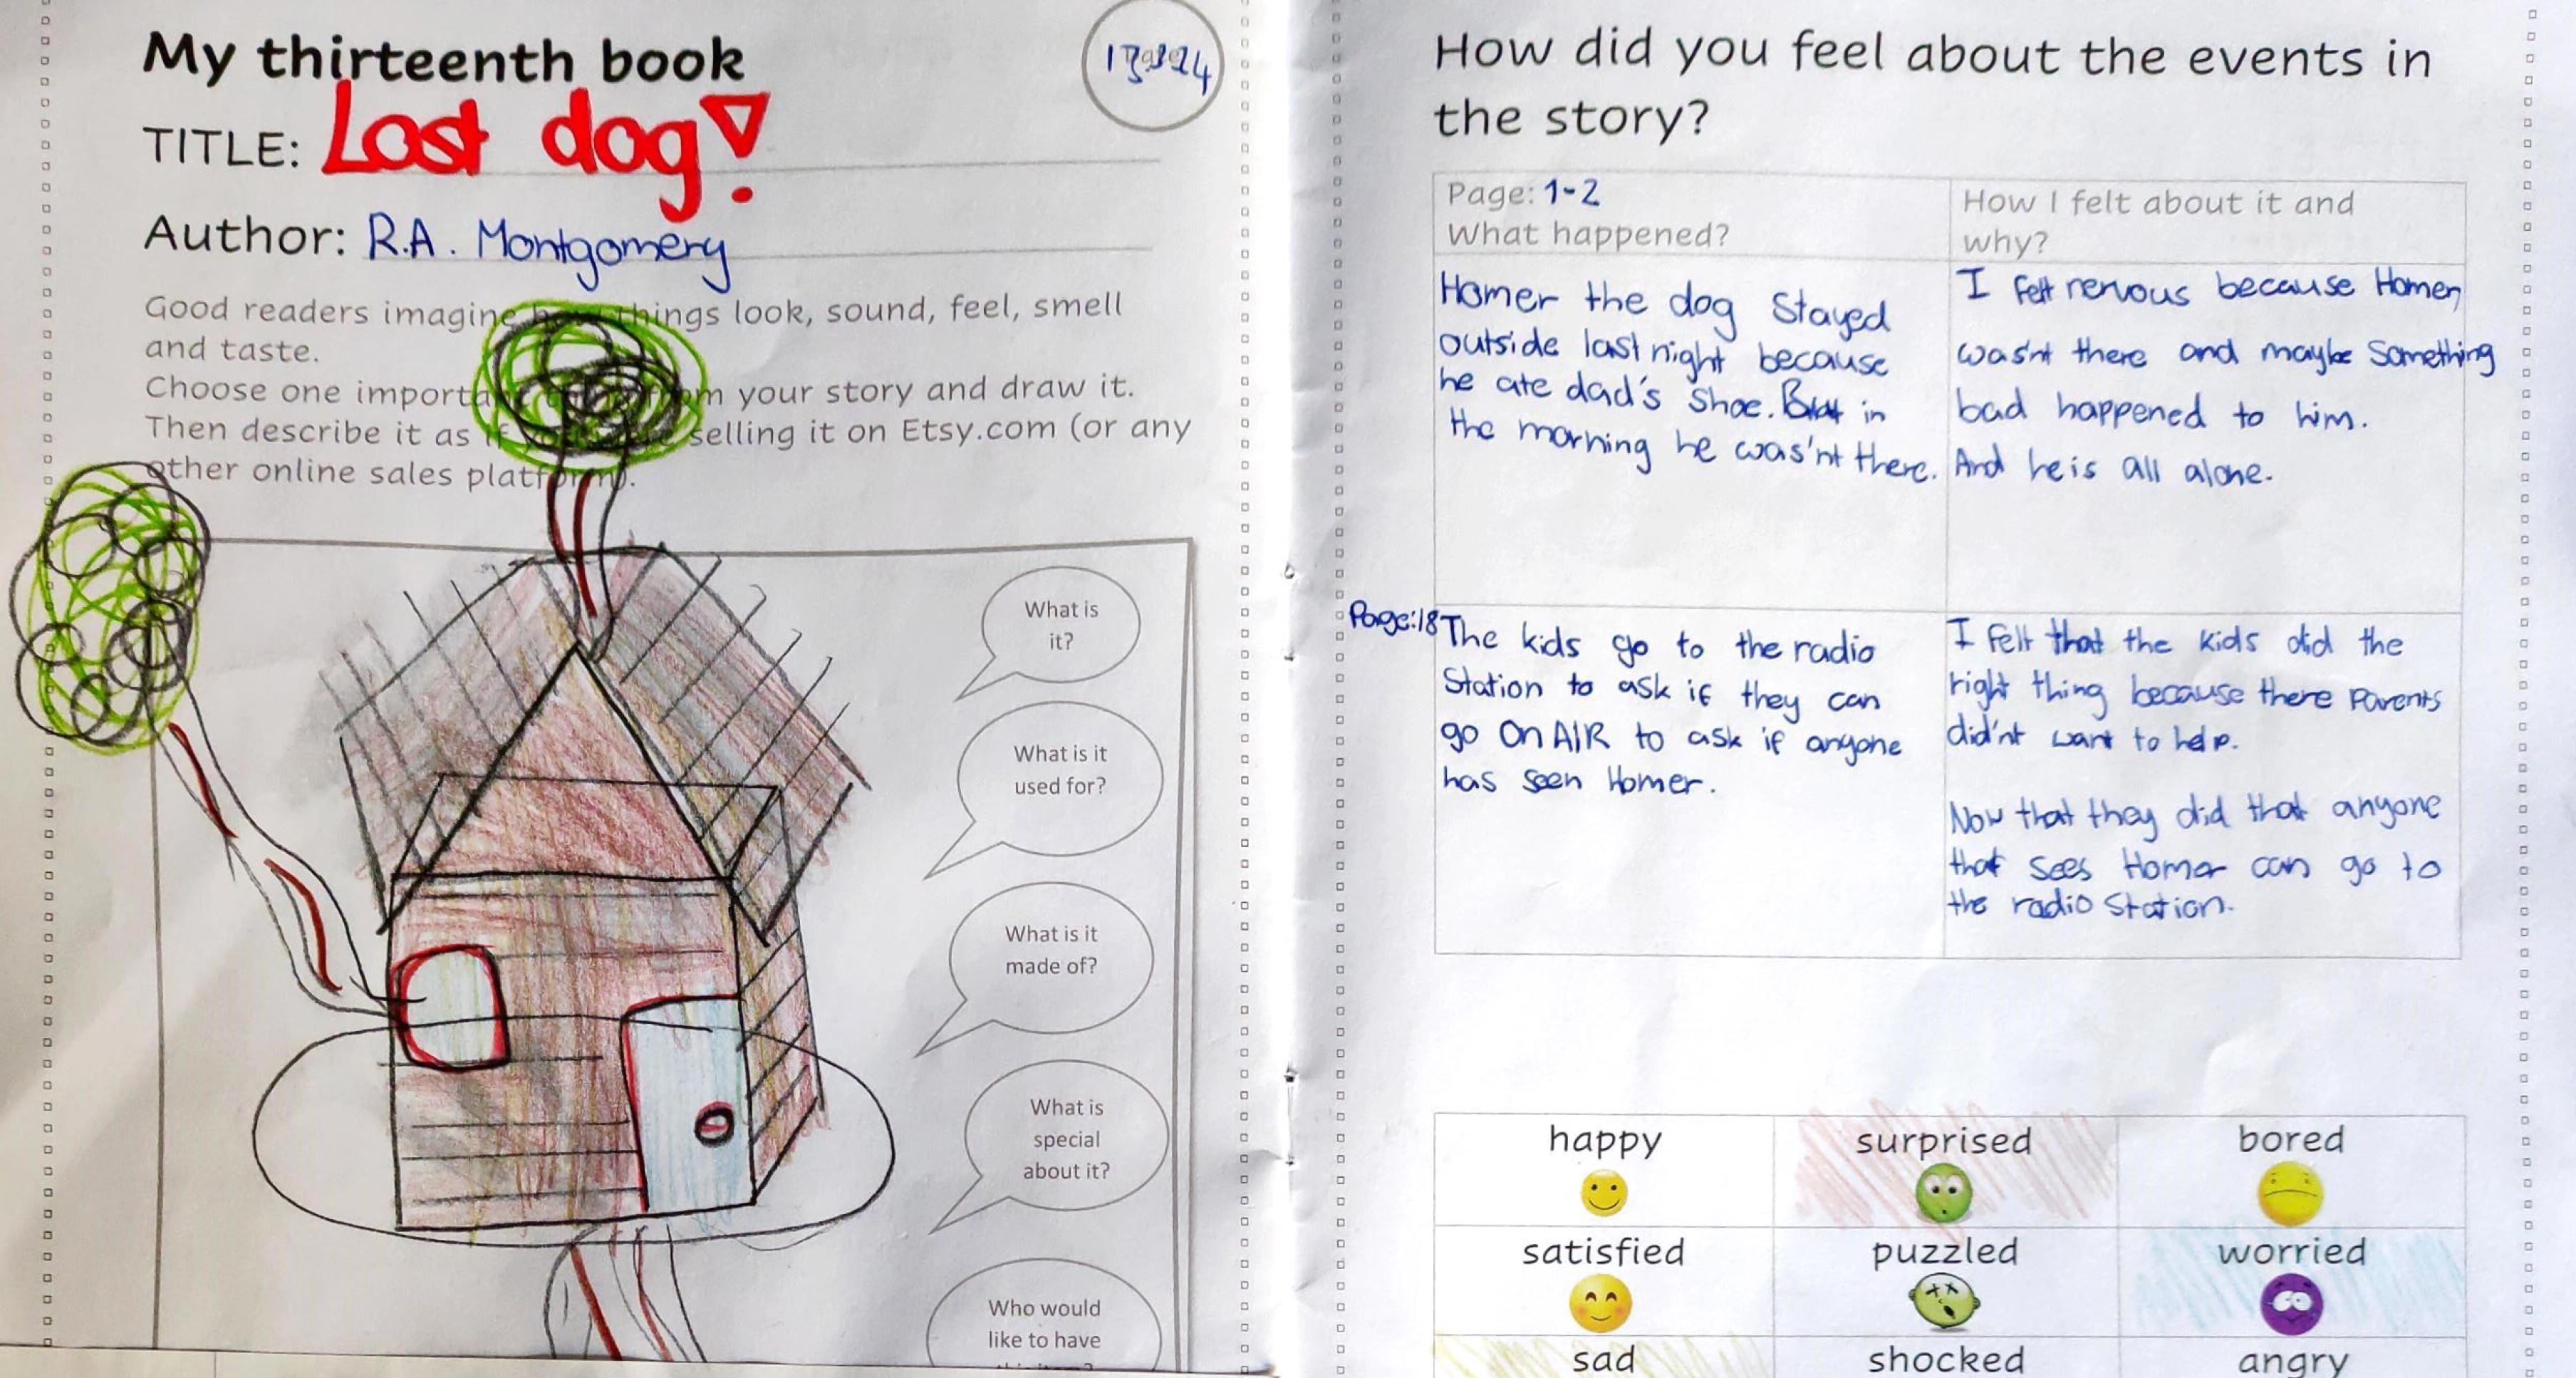 My thirteenth book
TITLE: Lost dog!
Author: R.A. Montgomery
Good readers imagine things look, sound, feel, smell
and taste.
Choose one from your story and draw it.
Then describe it as if selling it on Etsy.com (or any
other online sales platform).
What is
it?
What is it
used for?
What is it
made of?
What is
special
about it?
Who would
like to have
How did you feel about the events in
the story?
Page: 1-2
What happened?
How I felt about it and
why?
Homer the dog Stayed
outside last night because
he ate dad's shoe. But in
the morning he was'nt there.
I felt nervous because Homer,
was'nt there and maybe Something
bad happened to him.
And he is all alone.
Page:18
The kids go to the radio
Station to ask if they can
go On AIR to ask if anyone
has seen Homer.
I felt that the kids did the
right thing because there parents
did'nt want to help.
Now that they did that anyone
that sees Homer can go to
the radio Station.
happy
surprised
bored
satisfied
puzzled
worried
sad
shocked
angry